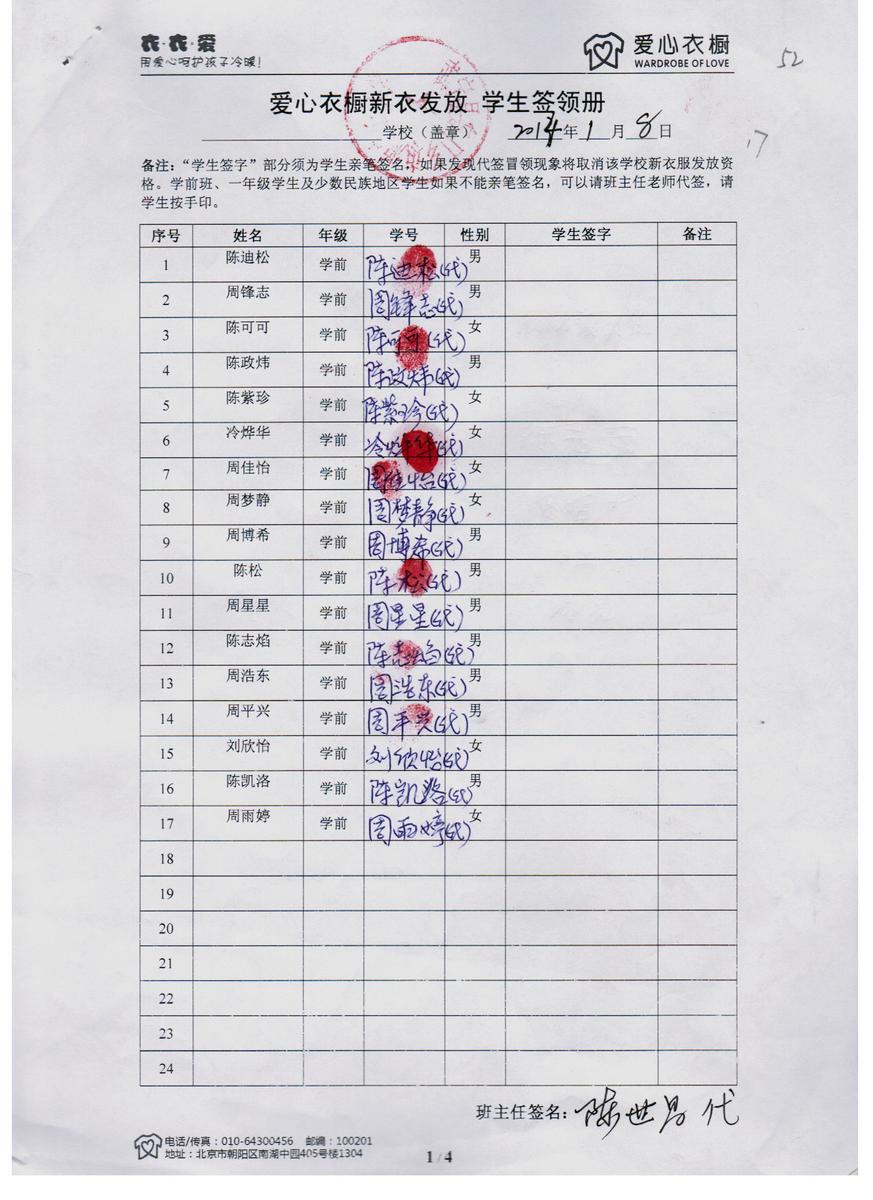 衣·衣·爱
用爱心呵护孩子冷暖!
爱心衣橱
WARDROBE OF LOVE
52
爱心衣橱新衣发放 学生签领册
学校（盖章） 2014年1月8日
17
备注：“学生签字”部分须为学生亲笔签名，如果发现代签冒领现象将取消该学校新衣服发放资
格。学前班、一年级学生及少数民族地区学生如果不能亲笔签名，可以请班主任老师代签，请
学生按手印。
序号 姓名 年级 学号 性别 学生签字 备注
1 陈迪松 学前 陈迪松(代) 男
2 周锋志 学前 周锋志(代) 男
3 陈可可 学前 陈可可(代) 女
4 陈政炜 学前 陈政炜(代) 男
5 陈紫珍 学前 陈紫珍(代) 女
6 冷烨华 学前 冷烨华(代) 女
7 周佳怡 学前 周佳怡(代) 女
8 周梦静 学前 周梦静(代) 女
9 周博希 学前 周博希(代) 男
10 陈松 学前 陈松(代) 男
11 周星星 学前 周星星(代) 男
12 陈志焰 学前 陈志焰(代) 男
13 周浩东 学前 周浩东(代) 男
14 周平兴 学前 周平兴(代) 男
15 刘欣怡 学前 刘欣怡(代) 女
16 陈凯洛 学前 陈凯洛(代) 男
17 周雨婷 学前 周雨婷(代) 女
18
19
20
21
22
23
24
班主任签名：陈世昌 代
电话/传真：010-64300456 邮编：100201
地址：北京市朝阳区南湖中园405号楼1304
1 / 4